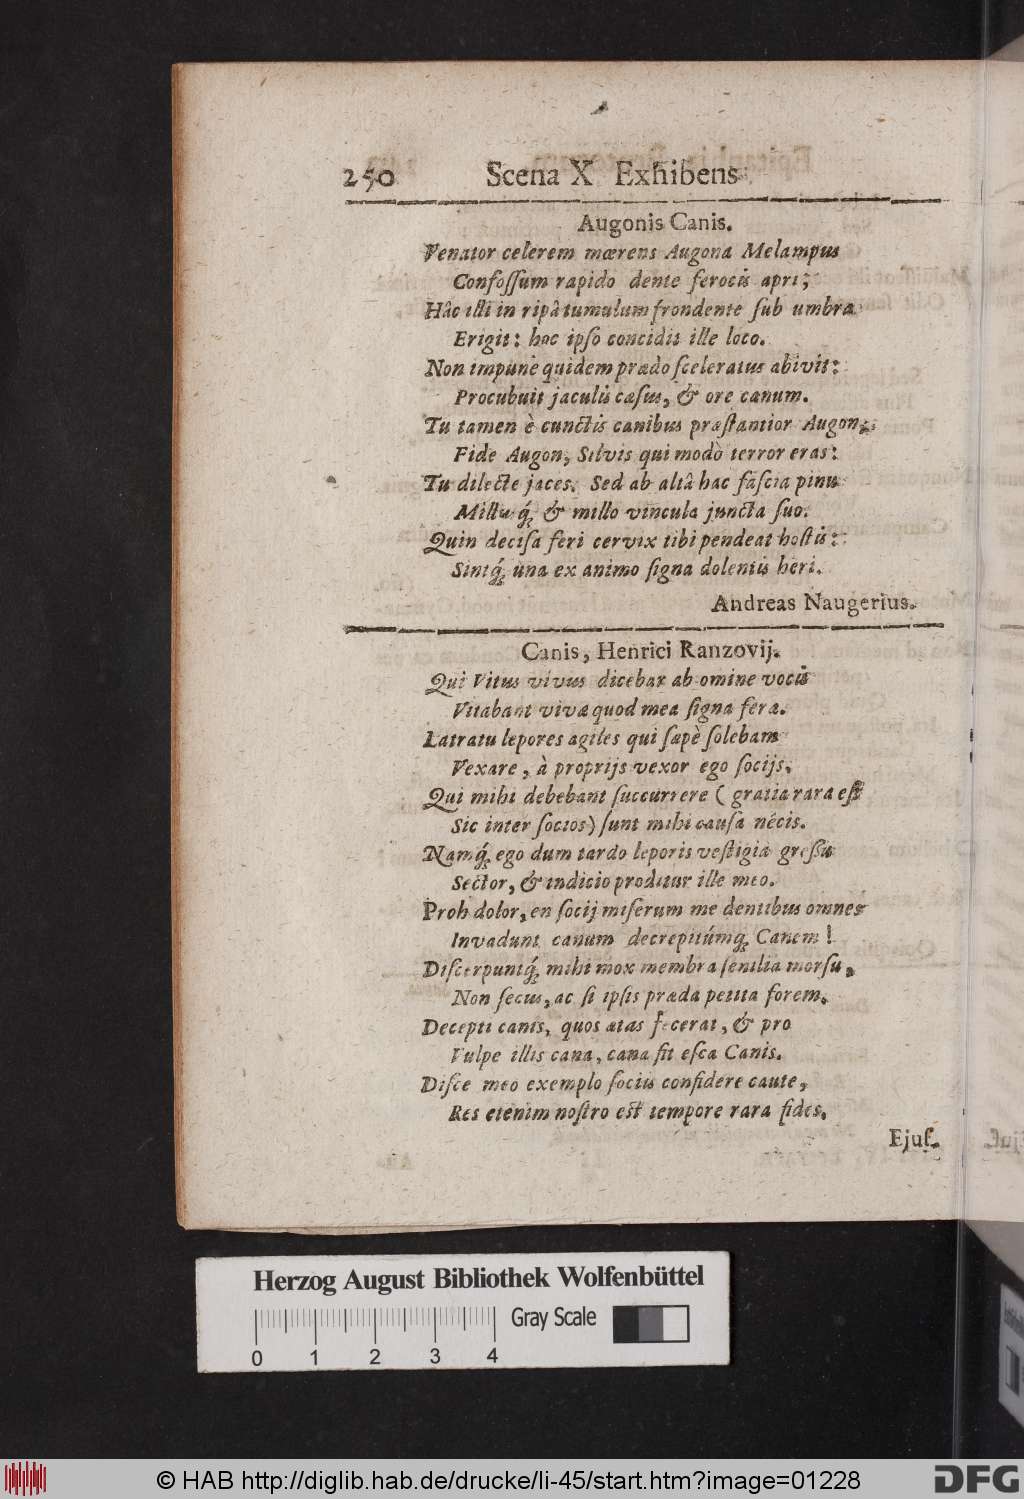 250 Scena X Exhibens
Augonis Canis.
Venator celerem mœrens Augona Melampus
Confoſſum rapido dente ferocis apri;
Hâc illi in ripâ tumulum frondente ſub umbra
Erigit: hoc ipſo concidit ille loco.
Non impunè quidem prædo ſceleratus abivit:
Procubuit jaculis cæſus, & ore canum.
Tu tamen è cunctis canibus præſtantior Augon,
Fide Augon, Silvis qui modò terror eras:
Tu dilecte jaces. Sed ab altâ hac faſcia pinu
Millusq́; & millo vincula juncta ſuo.
Quin deciſa feri cervix tibi pendeat hoſtis:
Sintq́; una ex animo ſigna dolentis heri.
Andreas Naugerius.
Canis, Henrici Ranzovij.
Qui Vitus vivus dicebar ab omine vocis
Vitabant vivæ quod mea ſigna feræ.
Latratu lepores agiles qui ſæpè ſolebam
Vexare, à proprijs vexor ego ſocijs,
Qui mihi debebant ſuccurrere ( gratia rara eſt
Sic inter ſocios) ſunt mihi cauſa nécis.
Namq́; ego dum tardo leporis veſtigia greſſu
Sector, & indicio proditur ille meo.
Proh dolor, en ſocij miſerum me dentibus omnes
Invadunt canum decrepitúmq; Canem!
Diſcerpuntq́; mihi mox membra ſenilia morſu,
Non ſecus, ac ſi ipſis præda petita forem.
Decepti canis, quos ætas fecerat, & pro
Vulpe illis cana, cana fit eſca Canis.
Diſce meo exemplo ſociis confidere caute,
Res etenim noſtro eſt tempore rara fides.
Ejuſ-
Herzog August Bibliothek Wolfenbüttel
Gray Scale
0 1 2 3 4
© HAB http://diglib.hab.de/drucke/li-45/start.htm?image=01228
DFG